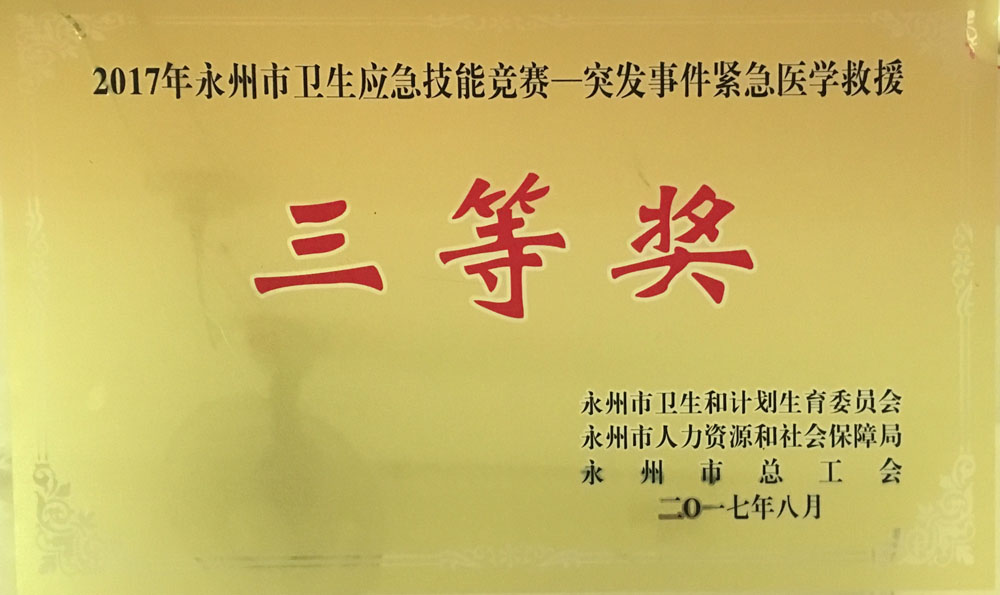 2017年永州市卫生应急技能竞赛—突发事件紧急医学救援
三等奖
永州市卫生和计划生育委员会
永州市人力资源和社会保障局
永州市总工会
二O一七年八月